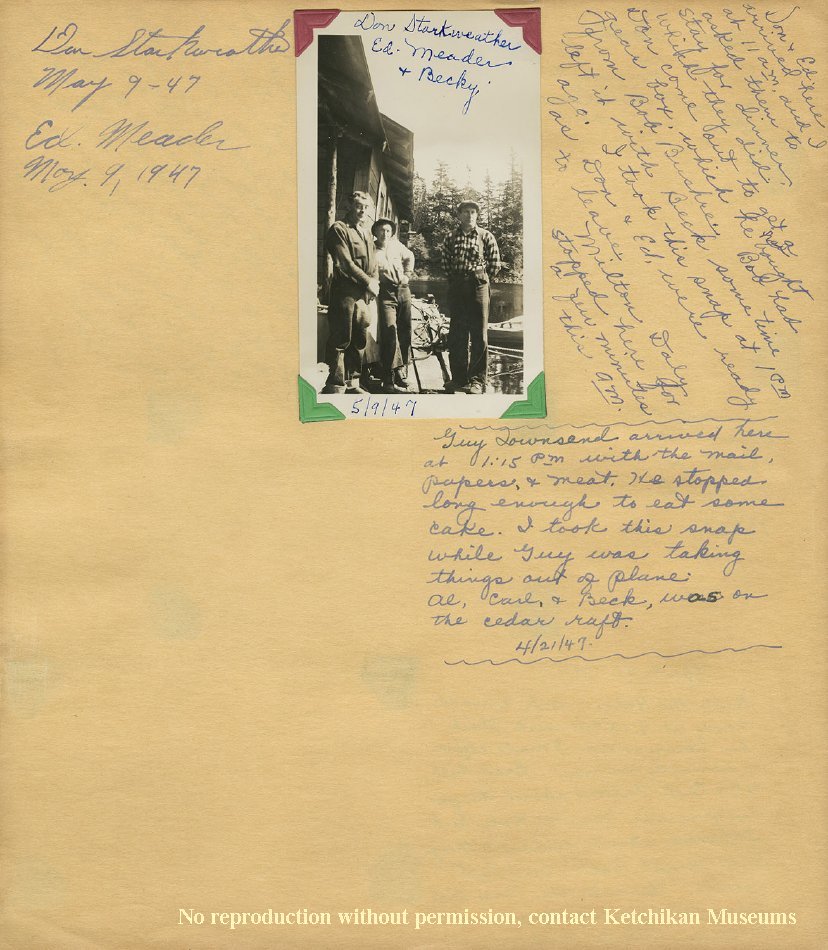 Don Starkweather
May 9-47
Ed. Meader
May. 9, 1947
Don Starkweather
Ed. Meader
& Becky.
5/9/47
Don & Ed
arrived here
at 11 a.m. and I
asked them to
stay for dinner,
which they did.
Don come out to get a
gear box, which he bought
from Bob Bob had
left it with Beck some time
ago. I took this snap at 1 PM
as Don & Ed. were ready
to leave. Milton Daly
stopped here for
a few minutes
this am.
Guy Townsend arrived here
at 1:15 PM with the mail,
papers, & meat. He stopped
long enough to eat some
cake. I took this snap
while Guy was taking
things out of plane.
Al, Carl, & Beck, was on
the cedar raft.
4/21/47.
No reproduction without permission, contact Ketchikan Museums